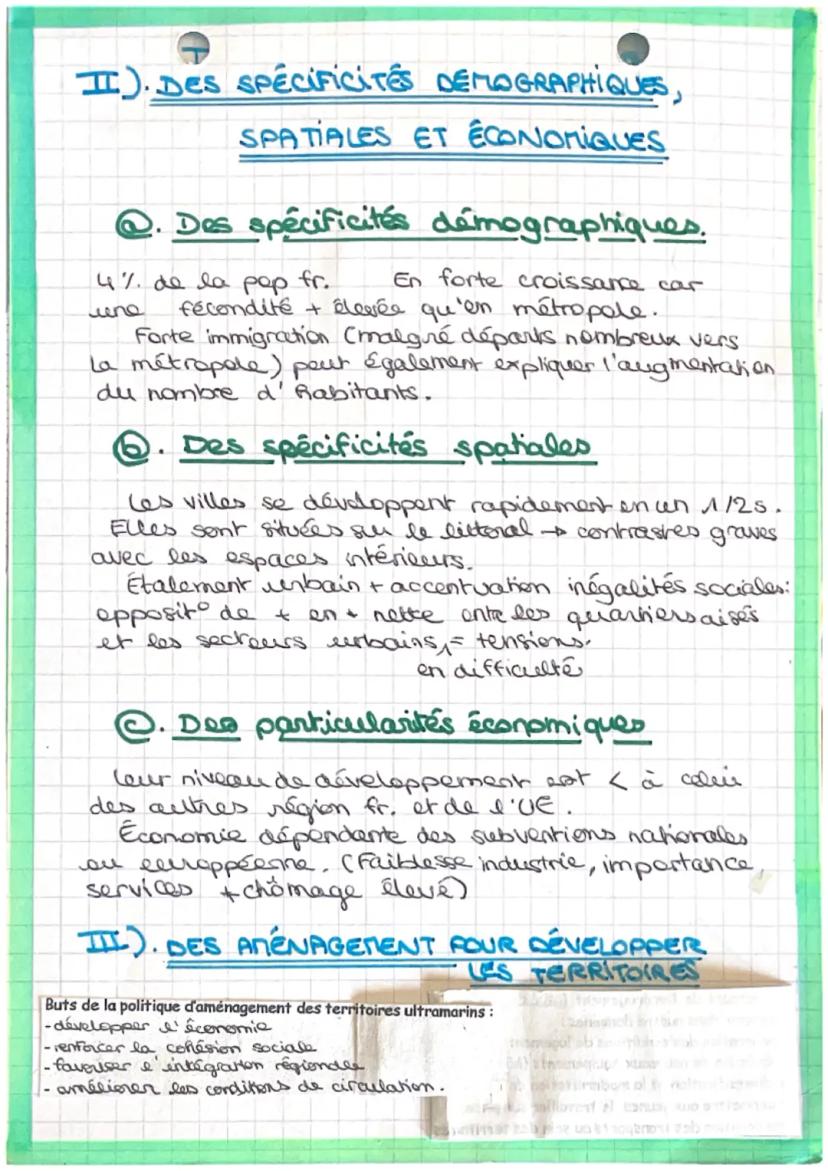 II). DES SPÉCIFICITÉS DÉMOGRAPHIQUES,
SPATIALES ET ÉCONOMIQUES
a. Des spécificités démographiques.
4% de la pop fr. En forte croissance car
une fécondité + élevée qu'en métropole.
Forte immigration (malgré départs nombreux vers
la métropole) peut également expliquer l'augmentation
du nombre d'habitants.
b. Des spécificités spatiales
Les villes se développent rapidement en un 1/2 s.
Elles sont situées sur le littoral → contrastes graves
avec les espaces intérieurs.
Étalement urbain + accentuation inégalités sociales:
opposit° de + en + nette entre les quartiers aisés
et les secteurs urbains, = tensions.
en difficulté
c. Des particularités économiques
Leur niveau de développement est < à celui
des autres région fr. et de l'UE.
Économie dépendante des subventions nationales
ou européenne. (Faiblesse industrie, importance,
services + chômage élevé)
III). DES AMÉNAGEMENT POUR DÉVELOPPER
LES TERRITOIRES
Buts de la politique d'aménagement des territoires ultramarins :
- développer l'économie
- renforcer la cohésion sociale
- favoriser l'intégration régionale
- améliorer les conditions de circulation.